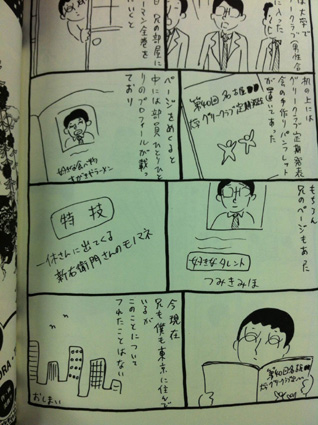 は大学で
グリークラブ(男性合
兄の部屋に
ーマン全巻を
いくと
机の上には
グリークラブ定期発表
会の手作りパンフレット
が置いてあった
第40回 名古屋
グリークラブ定期発表
ページをめくると
中には部員ひとりひと
りのプロフィールが載っ
ており
好きな食べ物
もちろん
兄のページもあった
好きなタレント
つみきみほ
特技
一休さんに出てくる
新右衛門さんのモノマネ
第40回名古屋
今現在
兄も僕も東京に住んで
いるが
このことについて
ふれたことはない
おしまい